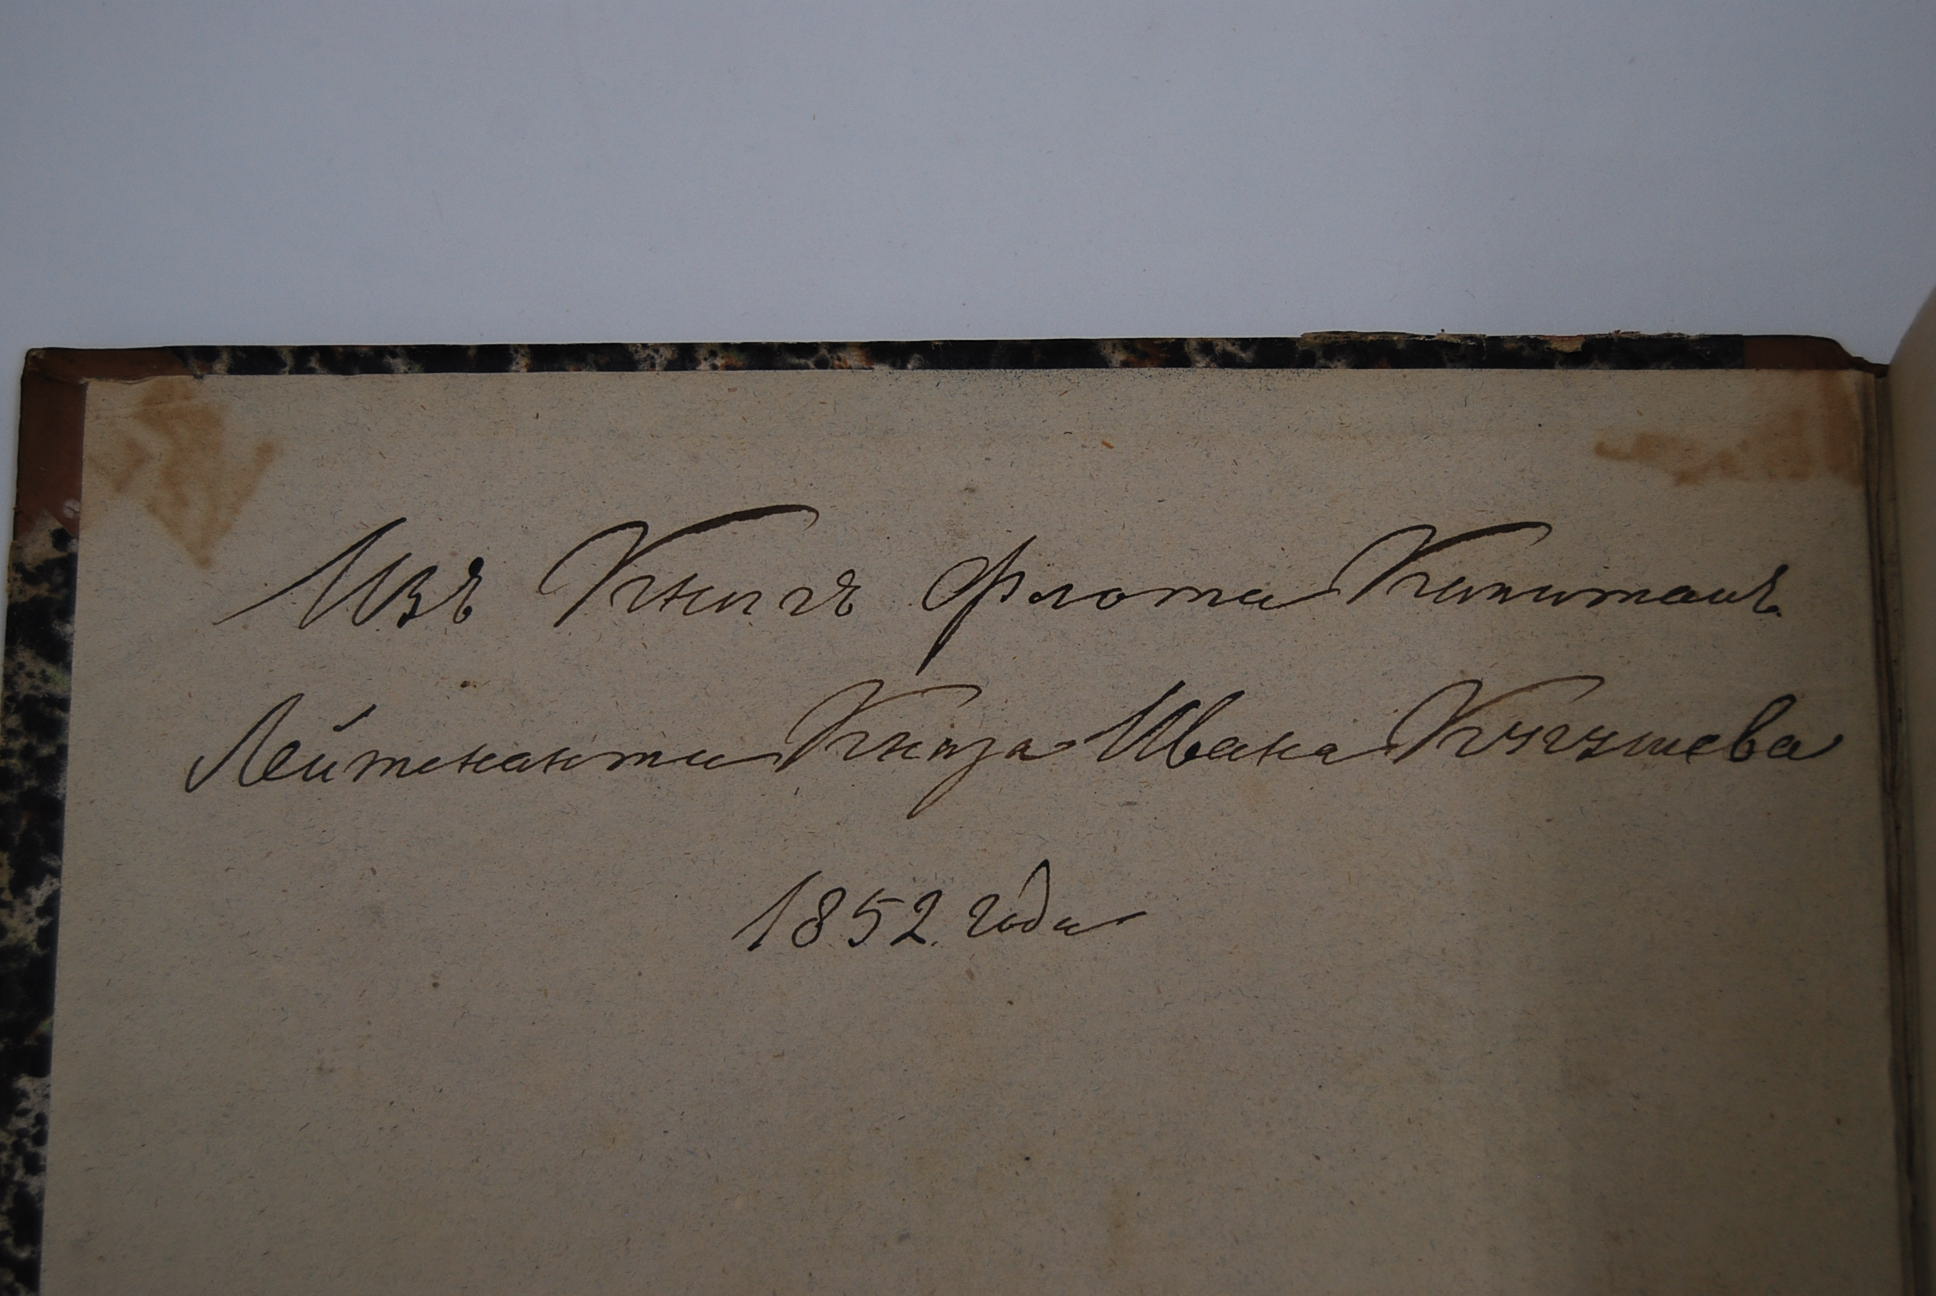 Изъ Книгъ Флота Капитанъ
Лейтенанта Князя Ивана Кугушева
1852 года